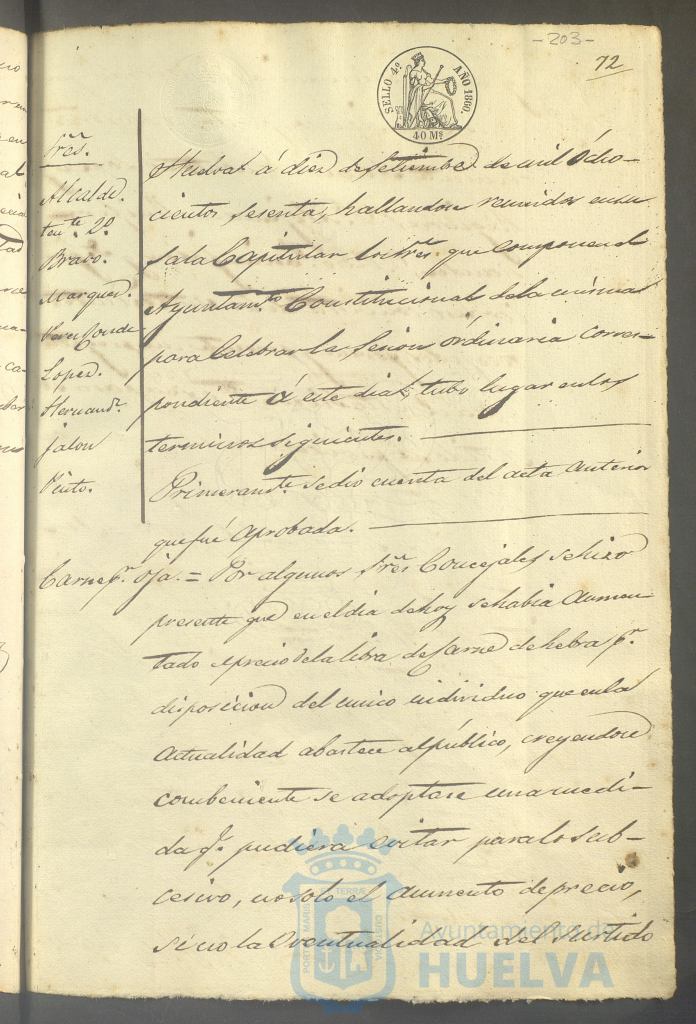 -203-
72
SELLO 4º AÑO 1860.
40 Ms
Sres.
Alcalde.
tente 2º
Bravo.
Marquez.
Perez Conde
Lopez.
Hernandz.
Jalon
Pinto.
Huelva á diez de Setiembre de mil ócho-
cientos sesenta, hallandose reunidos en su
Sala Capitular los Sres. que componen el
Ayuntamto. Constitucional de la misma
para Celebrar la Sesion órdinaria corres-
pondiente á este dia, tubo lugar en los
terminos siguientes.
Primeramte. se dio cuenta del acta anterior
que fué aprobada.
Carne pr. = Por algunos Sres Concejales se hizo
presente que en el dia de hoy se habia aumen-
tado el precio de la libra de Carne de hebra pr.
disposicion del unico individuo que en la
actualidad abastece al público, creyendose
combeniente se adoptase una medi-
da qe. pudiera evitar para lo sub-
cesivo, no solo el aumento de precio,
sino la eventualidad del surtido
PORTUS MARIS ET TERRAE CUSTODIA
Ayuntamiento de
HUELVA